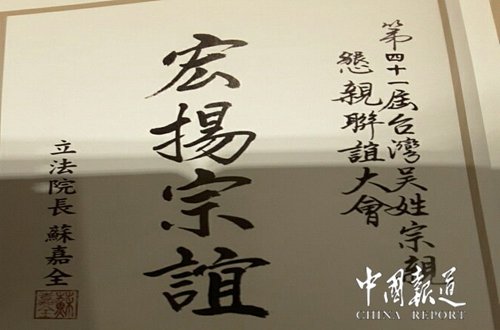 第四十一屆台灣吳姓宗親
懇親聯誼大會
宏揚宗誼
立法院長 蘇嘉全
中國報道
CHINA REPORT